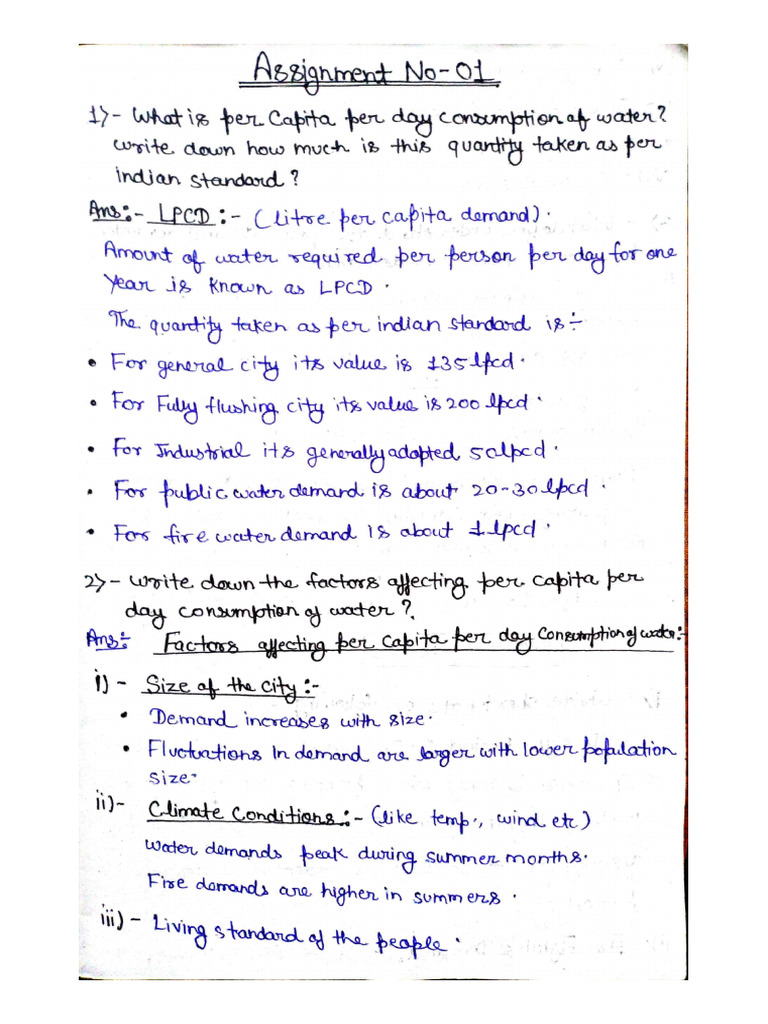 Assignment No-01
1)- What is per Capita per day consumption of water?
write down how much is this quantity taken as per
indian standard?
Ans:- LPCD:- (litre per capita demand).
Amount of water required per person per day for one
year is known as LPCD.
The quantity taken as per indian standard is:-
• For general city its value is 135 lpcd.
• For Fully flushing city its value is 200 lpcd.
• For Industrial its generally adopted 50lpcd.
• For public water demand is about 20-30 lpcd.
• For fire water demand is about 1 lpcd.
2)- write down the factors affecting per capita per
day consumption of water?
Ans:- Factors affecting per capita per day Consumption of water:-
i)- Size of the city:-
• Demand increases with size.
• Fluctuations in demand are larger with lower population
size.
ii)- Climate Conditions:- (like temp., wind etc)
water demands peak during summer months.
Fire demands are higher in summers.
iii)- Living standard of the people.